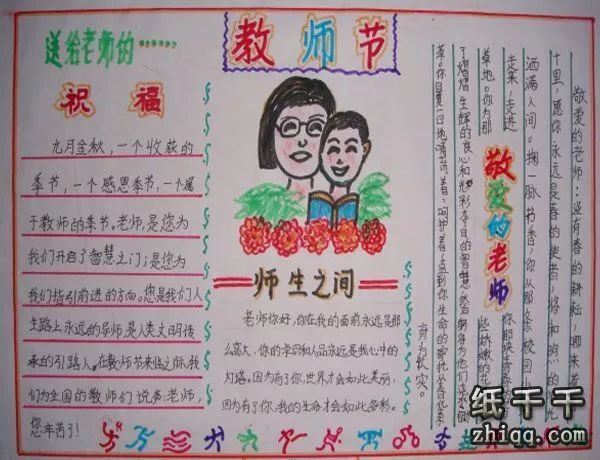 送给老师的······
祝福
九月金秋,一个收获的
季节,一个感恩季节,一个属
于教师的季节。老师,是您为
我们开启了智慧之门;是您为
我们指引前进的方向。您是我们人
生路上永远的导师,是人类文明传
承的引路人。在教师节来临之际,我
们为全国的教师们说声:老师,
您辛苦了!
教师节
师生之间
老师你好,你在我的面前永远是那
么高大,你的学识和人品永远是我心中的
灯塔。因为有了你,世界才会如此美丽,
因为有了你,我的生命才会如此多彩。
敬爱的老师
敬爱的老师:没有春的耕耘,哪来
十里,愿你永远是春的使者,将和
洒满人间。掬一脉书香,你从那条校园
走来,走进
草地。你为那
你那
些娇嫩的花
了熠熠生辉的良心和光彩夺目的智慧,然
草。你日复一日地
奋为长实。
纸千千
zhiqq.com